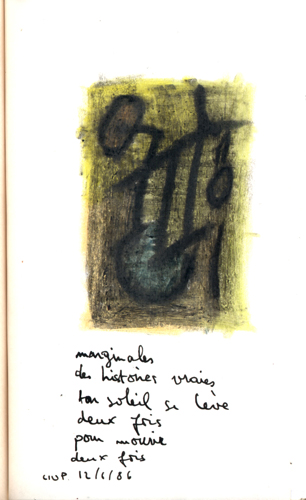 marginales
des histoires vraies
ton soleil se lève
deux fois
pour mourir
deux fois
CIUP. 12/6/86